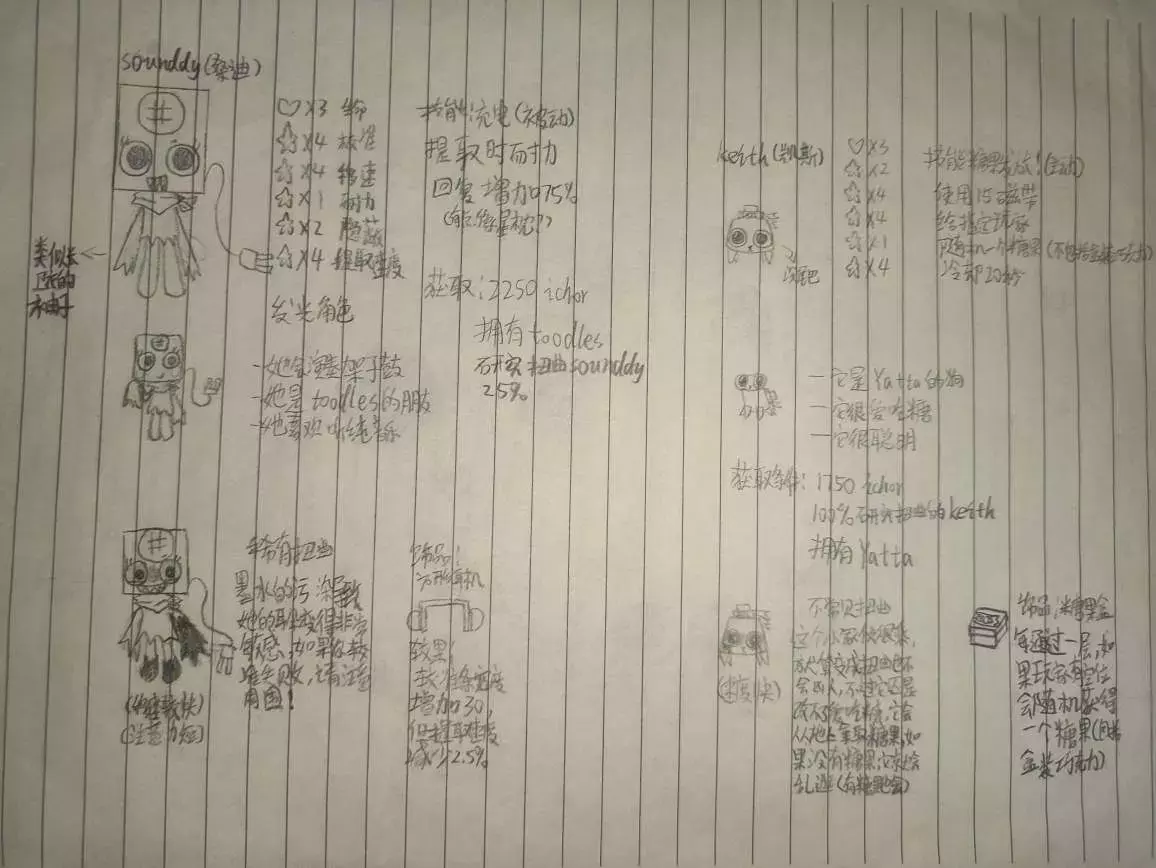 sounddy(桑迪)
#
♡×3 生命
☆×4 校准
☆×4 移速
☆×1 耐力
☆×2 隐蔽
☆×4 提取速度
类似长
的
袖子
发光角色
-她会演奏架子鼓
-她是toodles的朋友
-她喜欢听纯音乐
技能:充电(被动)
提取时耐力
回复增加0.75%
获取:2250 ichor
拥有toodles
研究扭曲sounddy
25%
#
稀有扭曲
墨水的污染导致
她的耳朵变得非常
敏感,如果你校
准失败,请注意
周围!
(移速较快)
(注意力短)
饰品:
耳机
效果:
校准条宽度
增加30,
但提取速度
减少2.5%
keith(凯斯)
♡×3
☆×2
☆×4
☆×4
☆×1
☆×4
技能:糖果发放!(主动)
使用15磁带
给指定玩家
随机一个糖果
冷却20秒
尾巴
-它是Yatta的狗
-它很爱吃糖
-它很聪明
获取条件:1750 ichor
100%研究扭曲的keith
拥有Yatta
不常见扭曲
这个小家伙很乖,
就算变成扭曲也不
会凶人,不过它还是
改不了爱吃糖,它会
从地上拿取糖果,如
果没有糖果,它就会
乱逛
(速度快)
饰品:糖果盒
每通过一层,如
果玩家有空位
会随机获得
一个糖果
金装巧克力)